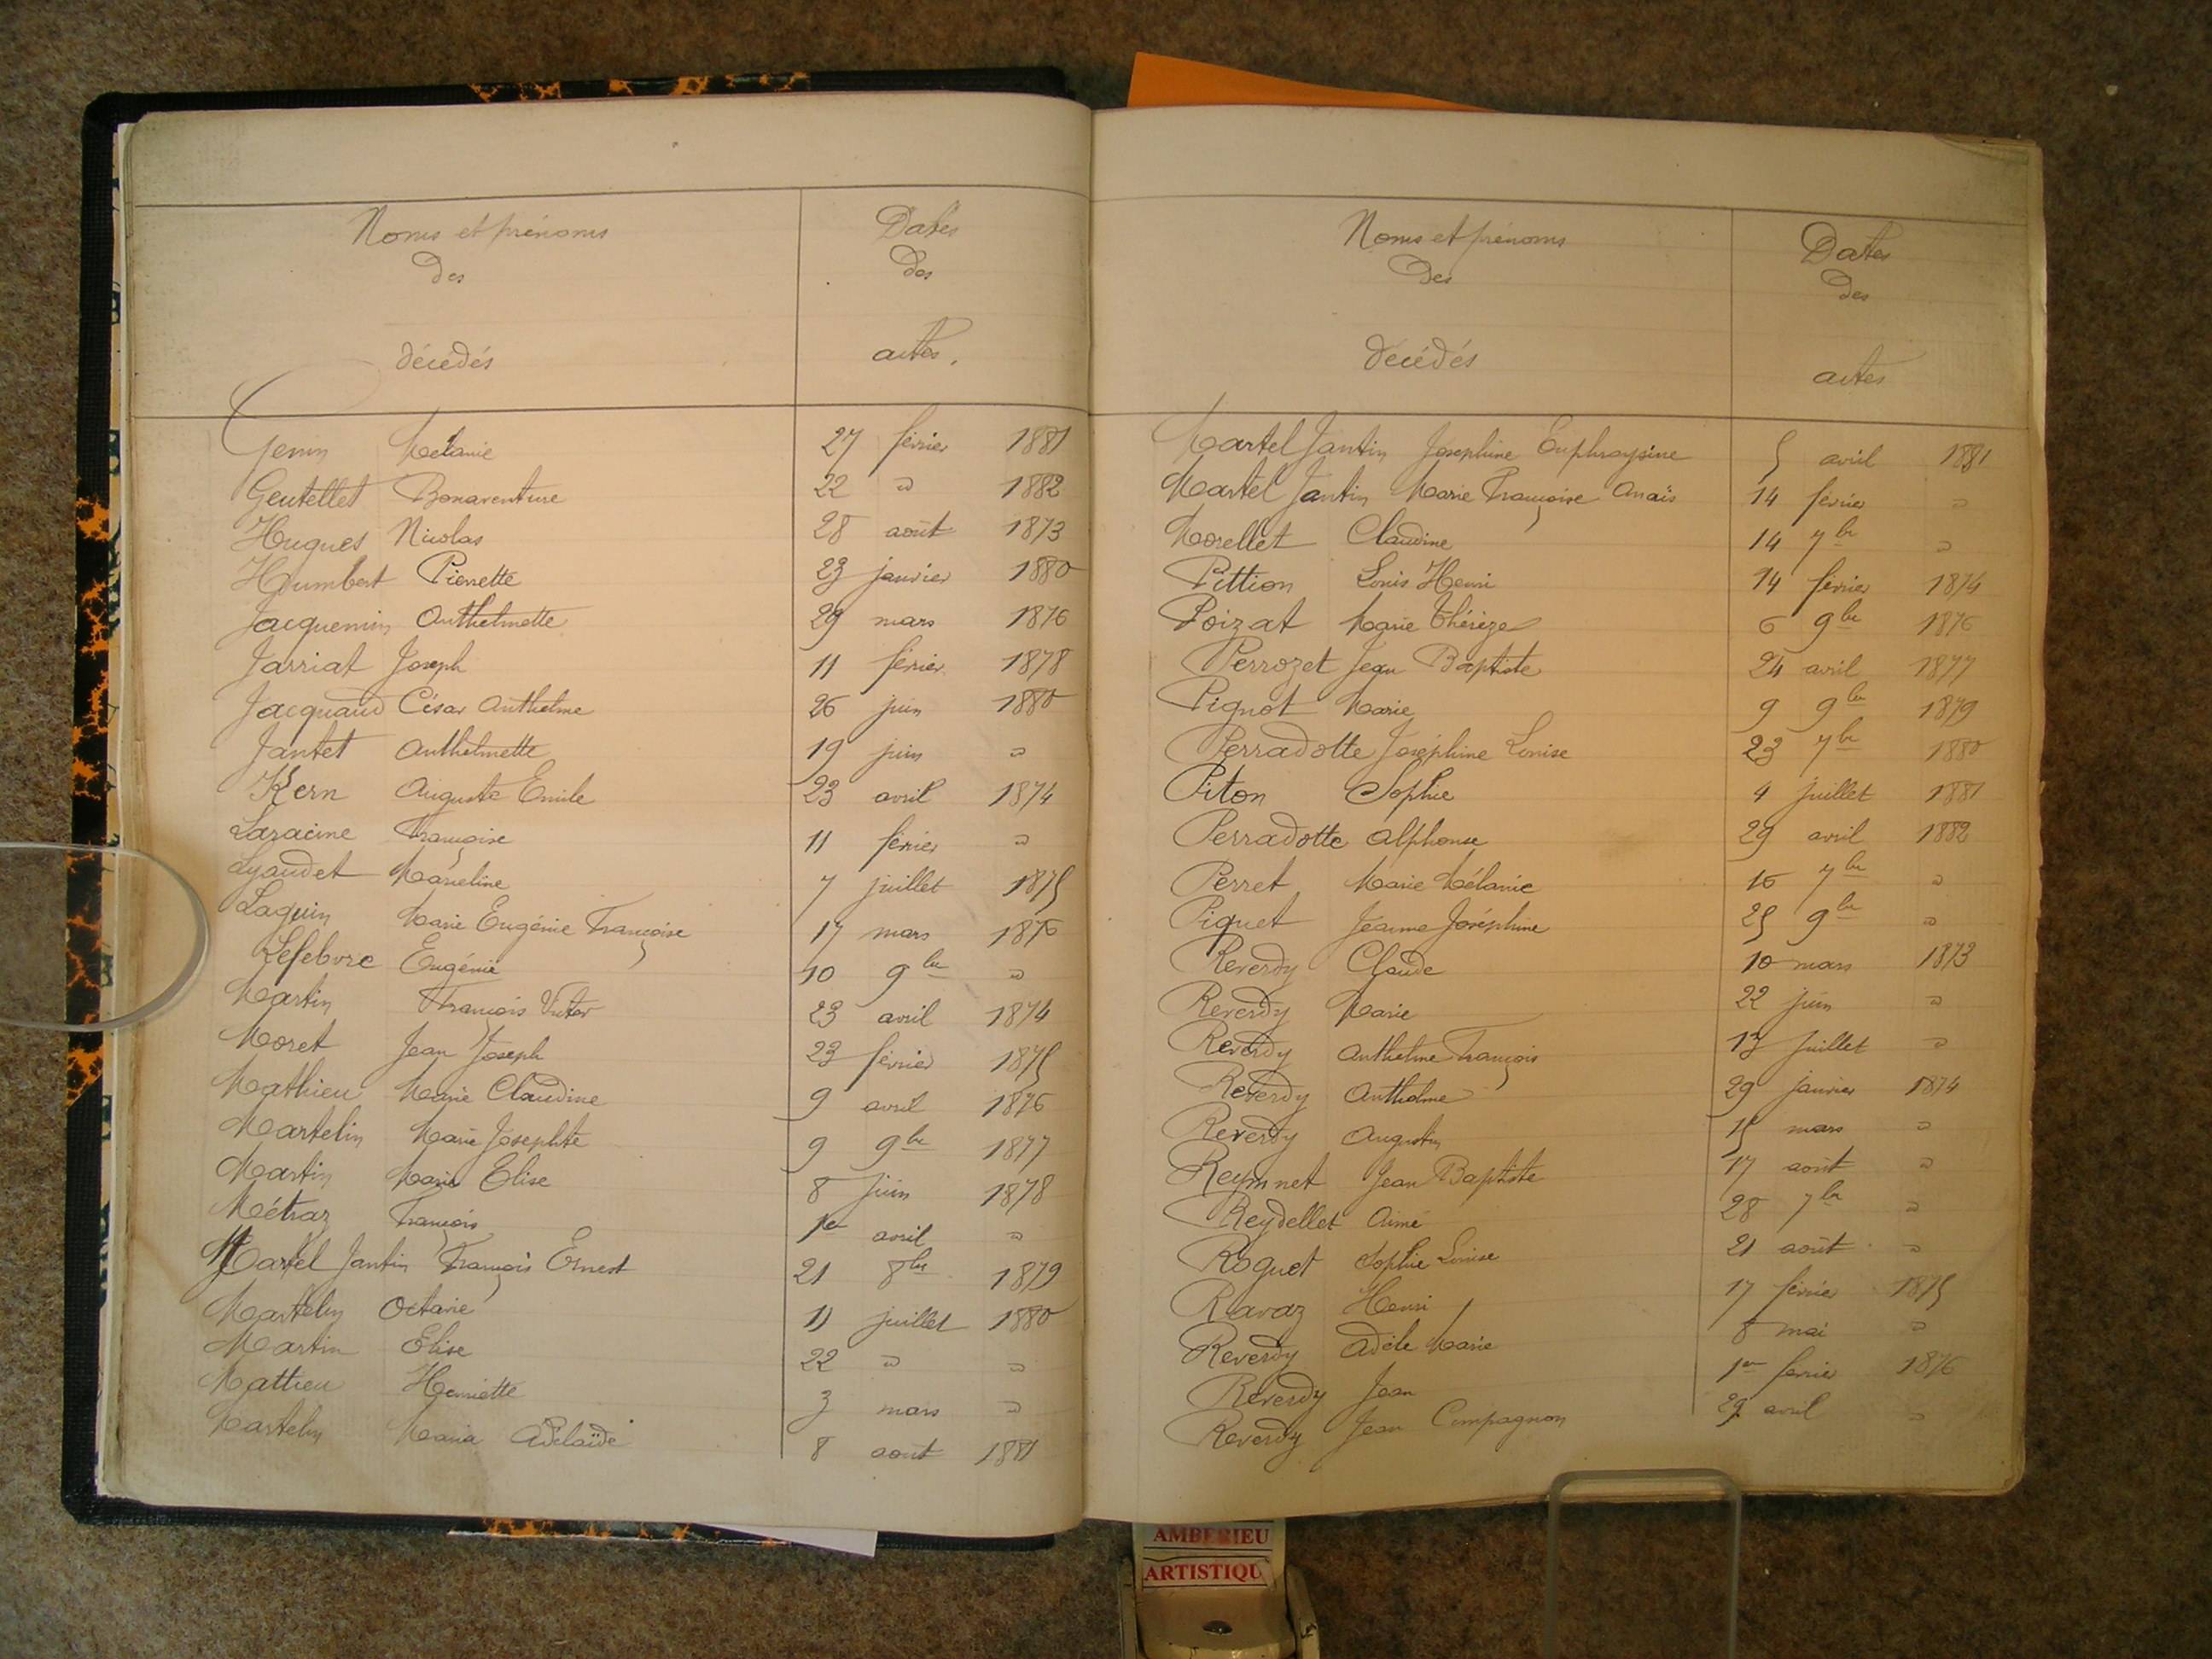 Noms et prénoms
des
décédés
Dates
des
actes.
Genin Mélanie 27 février 1881
Gentellet Bonaventure 22 " 1882
Hugues Nicolas 28 août 1873
Humbert Pierrette 23 janvier 1880
Jacquemin Anthelmette 29 mars 1876
Jarriat Joseph 11 février 1878
Jacquand César Anthelme 26 juin 1880
Jantet Anthelmette 19 juin "
Kern Auguste Emile 23 avril 1874
Laracine Françoise 11 février "
Lyaudet Marieline 7 juillet 1875
Laguin Marie Eugénie Françoise 17 mars 1876
Lefebvre Eugénie 10 9bre "
Martin François Victor 23 avril 1874
Moret Jean Joseph 23 février 1875
Mathieu Marie Claudine 9 avril 1876
Martelin Marie Josephte 9 9bre 1877
Martin Marie Elise 8 juin 1878
Métraz François 1er avril "
Martel Jantin François Ernest 21 8bre 1879
Martelin Octavie 11 juillet 1880
Martin Elise 22 " "
Mattieu Henriette 3 mars "
Martelin Maria Adélaïde 8 août 1881
Noms et prénoms
des
décédés
Dates
des
actes
Martel Jantin Joséphine Euphraysine 5 avril 1881
Martel Jantin Marie Françoise Anaïs 14 février "
Morellet Claudine 14 7bre "
Pittion Louis Henri 14 février 1874
Poizat Marie Thérèze 6 9bre 1876
Perrozet Jean Baptiste 24 avril 1877
Pignot Marie 9 9bre 1879
Perradotte Joséphine Louise 23 7bre 1880
Piton Sophie 4 juillet 1881
Perradotte Alphonse 29 avril 1882
Perret Marie Mélanie 16 7bre "
Piquet Jeanne Joséphine 25 9bre "
Reverdy Claude 10 mars 1873
Reverdy Marie 22 juin "
Reverdy Anthelme François 13 Juillet "
Reverdy Anthelme 29 janvier 1874
Reverdy Augustin 15 mars "
Reymnet Jean Baptiste 17 août "
Reydellet Aimé 28 7bre "
Roguet Sophie Louise 21 août "
Ravaz Henri 17 février 1875
Reverdy Adèle Marie 8 mai "
Reverdy Jean 1er février 1876
Reverdy Jean Compagnon 29 avril "
AMBERIEU
ARTISTIQU